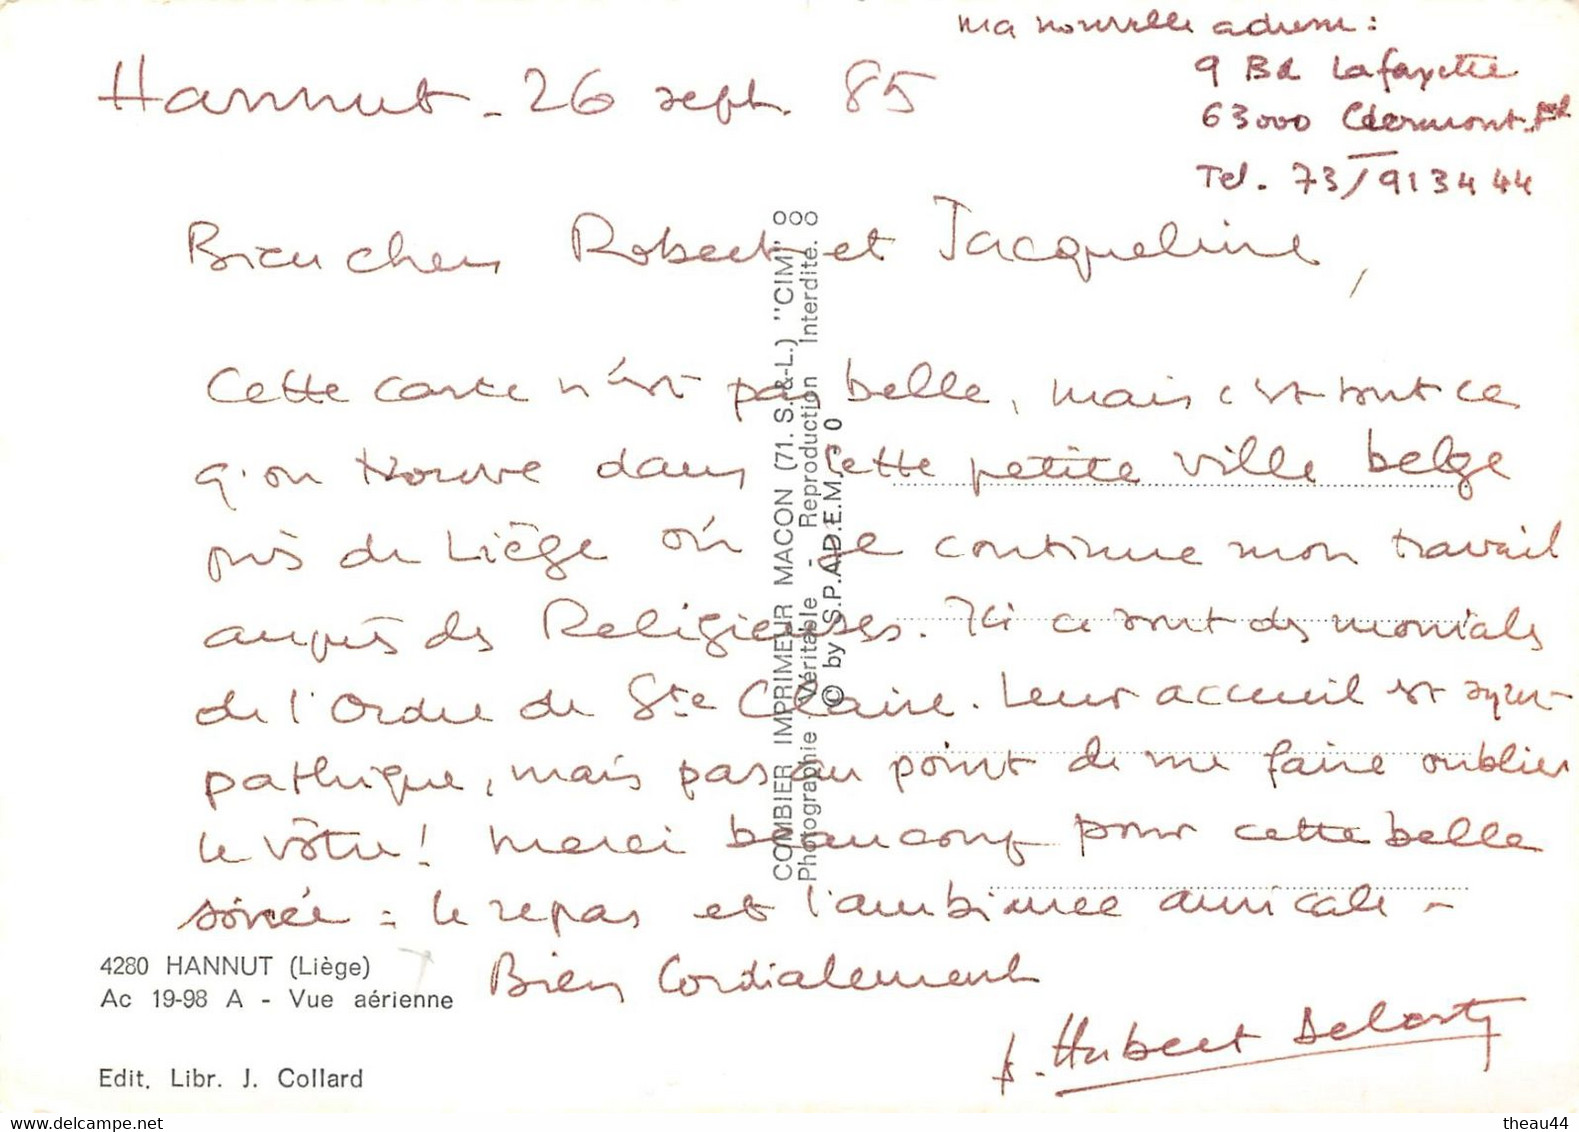 ma nouvelle adresse :
9 Bd Lafayette
63000 Clermont-Fd
Tel. 73/913444
Hannut - 26 sept. 85
Bien chers Robert et Jacqueline,
Cette carte n'est pas belle, mais c'est tout ce
q'on trouve dans cette petite ville belge
près de Liège où je continue mon travail
auprès des Religieuses. Ici ce sont des moniales
de l'Ordre de Ste Claire. Leur accueil est sym-
pathique, mais pas au point de me faire oublier
le vôtre ! Merci beaucoup pour cette belle
soirée : le repas et l'ambiance amicale -
Bien Cordialement
f. Hubert
4280 HANNUT (Liège)
Ac 19-98 A - Vue aérienne
Edit. Libr. J. Collard
COMBIER IMPRIMEUR MACON (71. S.-&-L.) "CIM"
Photographie Véritable - Reproduction Interdite.
© by S.P.A.D.E.M. 0
theau44